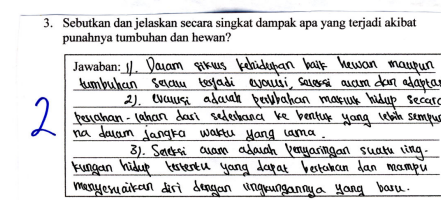 3. Sebutkan dan jelaskan secara singkat dampak apa yang terjadi akibat
punahnya tumbuhan dan hewan?
Jawaban: 1). Dalam siklus kehidupan baik hewan maupun
tumbuhan selalu terjadi evolusi, seleksi alam dan adaptas
2). evolusi adalah perubahan makhluk hidup secara
perlahan-lahan dari sederhana ke bentuk yang lebih sempur
na dalam jangka waktu yang lama.
3). Seleksi alam adalah penyaringan suatu ling-
kungan hidup tertentu yang dapat bertahan dan mampu
menyesuaikan diri dengan lingkungannya yang baru.
2